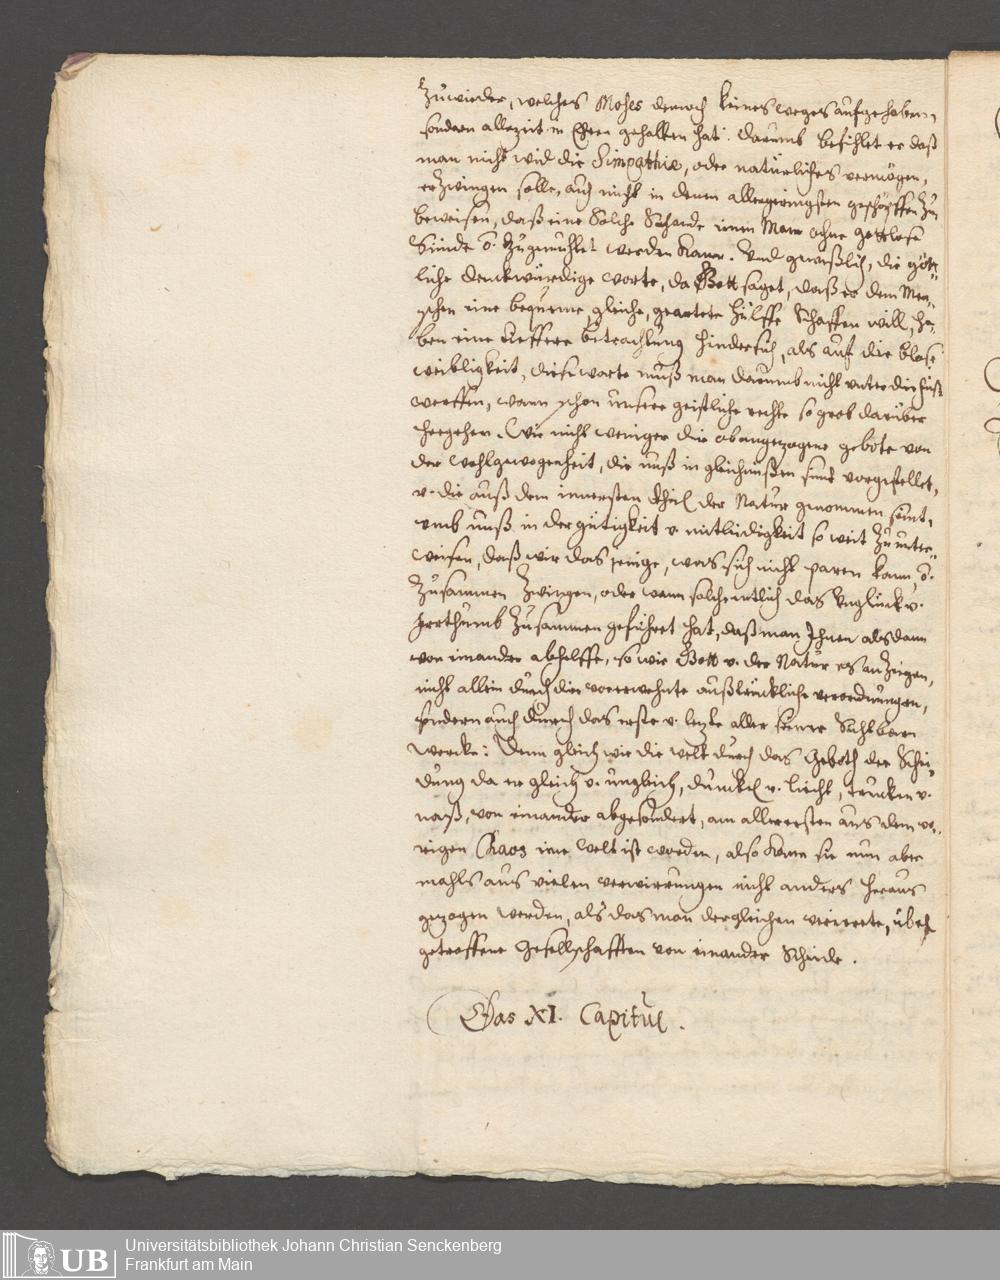 zuwieder, welches Moses dennoch keines weges aufgehaben,
sondern allezeit in Ehren gehalten hat. Darumb befihlet er daß
man nicht wid die Simpathie, oder natürliches vermögen,
erzwingen solle, auch nicht in denen allergeringsten geschöpffen zu
beweisen, daß eine solche Schande einem Mann ohne gottlose
Sünde ō. zugemuhtet werden kann. Und gewißlich, die gött-
liche denckwürdige worte, da Gott saget, daß er dem Men-
schen eine bequeme gleiche, geartete hülffe schaffen will, ha-
ben eine tieffere betrachtung hinder sich, als auf die blose
weibligkeit, diese worte muß man darumb nicht unter die füße
werffen, wann schon unsere geistliche rechte so grob darüber
hergehen. Wie nicht weniger die obangezogene gebote von
der wohlgewogenheit, die unß in gleichnüßen sind vorgestellet,
v. die auß dem innersten theil der Natur genommen seint,
umb unß in der gütigkeit v. mitleidigkeit so weit zu unter-
weisen, daß wir das jenige, was sich nicht paren kann, ō.
zusammen zwingen, oder wann solche entlich das Unglück v.
Irrthumb zusammen geführet hat, daß man Ihnen alsdann
von einander abhelffe, so wie Gott v. der Natur es anzeigen,
nicht allein durch die vorerwehnte außtrückliche verordnungen,
sondern auch durch das erste v. letzte aller seiner Sichtbarn
wercke: Denn gleich wie die welt durch das Geboth der Schei-
dung da er gleich v. ungleich, dunckel v. liecht, trucken v.
naß, von einander abgesondert, am allerersten aus dem vo-
rigen Chaos eine welt ist worden, also kann sie nun aber
mahls aus vielen verwirrungen nicht anders heraus
gezogen werden, als das man dergleichen verirrete, übel
getroffene Gesellschafften von einander scheide.
Das XI. Capitul.
UB
Universitätsbibliothek Johann Christian Senckenberg
Frankfurt am Main